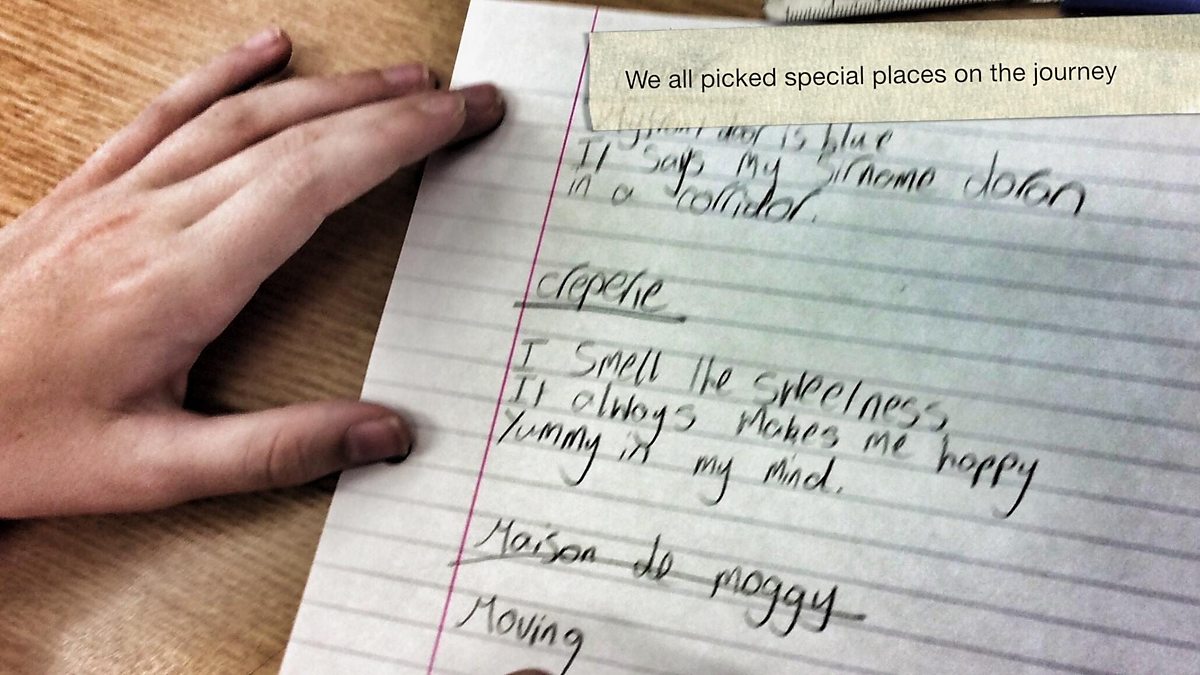 We all picked special places on the journey
door is blue
It says my sirname doran
in a corridor.
creperie
I smell the sweetness
It always makes me happy
Yummy in my mind.
Maison de moggy
Moving